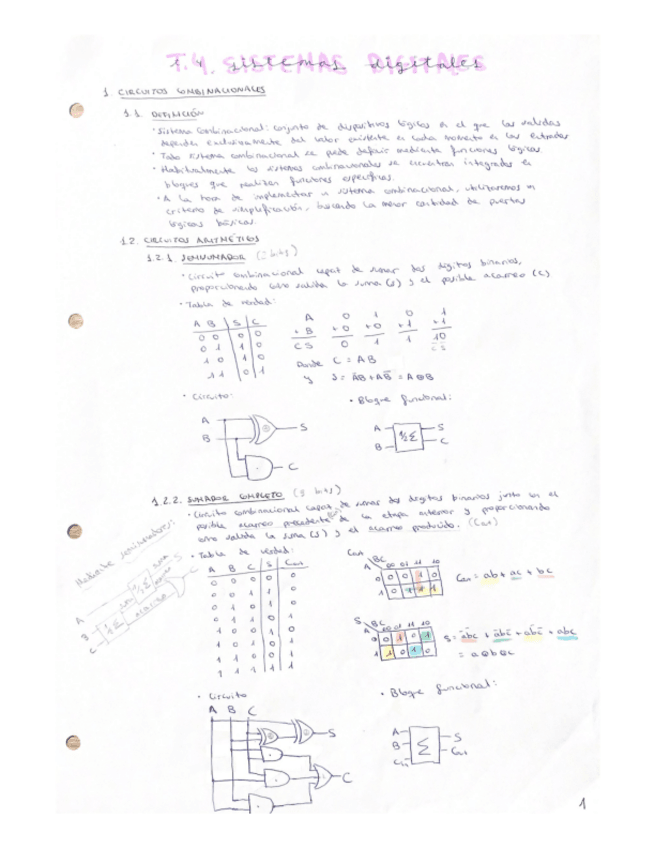 T.4. SISTEMAS DIGITALES
T.4 sistemas digitales
1 CIRCUITOS COMBINACIONALES
1.1. DEFINICIÓN
· Sistema combinacional: conjunto de dispositivos lógicos en el que las salidas
dependen exclusivamente del valor existente en cada momento en las entradas
· Todo sistema combinacional se puede definir mediante funciones lógicas.
· Habitualmente los sistemas combinacionales se encuentran integrados en
bloques que realizan funciones específicas.
· A la hora de implementar un sistema combinacional, utilizaremos un
criterio de simplificación, buscando la menor cantidad de puertas
lógicas básicas.
1.2. CIRCUITOS ARITMÉTICOS
1.2.1. SEMISUMADOR (2 bits)
· Circuito combinacional capaz de sumar dos dígitos binarios,
proporcionando como salida la suma (S) y el posible acarreo (C)
· Tabla de verdad:
A B S C
0 0 0 0
0 1 1 0
1 0 1 0
1 1 0 1
A 0 1 0 1
+ B +0 +0 +1 +1
C S 0 1 1 10
C S
Donde C = AB
y S = A̅B + AB̅ = A⊕B
· Circuito:
A
B
S
C
· Bloque funcional:
A
B
½Σ
S
C
1.2.2. SUMADOR COMPLETO (3 bits)
· Circuito combinacional capaz de sumar dos dígitos binarios junto con el
posible acarreo precedente de la etapa anterior y proporcionando
como salida la suma (S) y el acarreo producido. (Cout)
Mediante semisumadores:
· Tabla de verdad:
A B C S Cout
0 0 0 0 0
0 0 1 1 0
0 1 0 1 0
0 1 1 0 1
1 0 0 1 0
1 0 1 0 1
1 1 0 0 1
1 1 1 1 1
Cout
A BC 00 01 11 10
0 0 0 1 0
1 0 1 1 1
Cout = ab + ac + bc
S
A BC 00 01 11 10
0 0 1 0 1
1 1 0 1 0
S = a̅b̅c + a̅bc̅ + ab̅c̅ + abc
= a⊕b⊕c
· Circuito
A B C
S
C
· Bloque funcional:
A
B
Cin
Σ
S
Cout
1